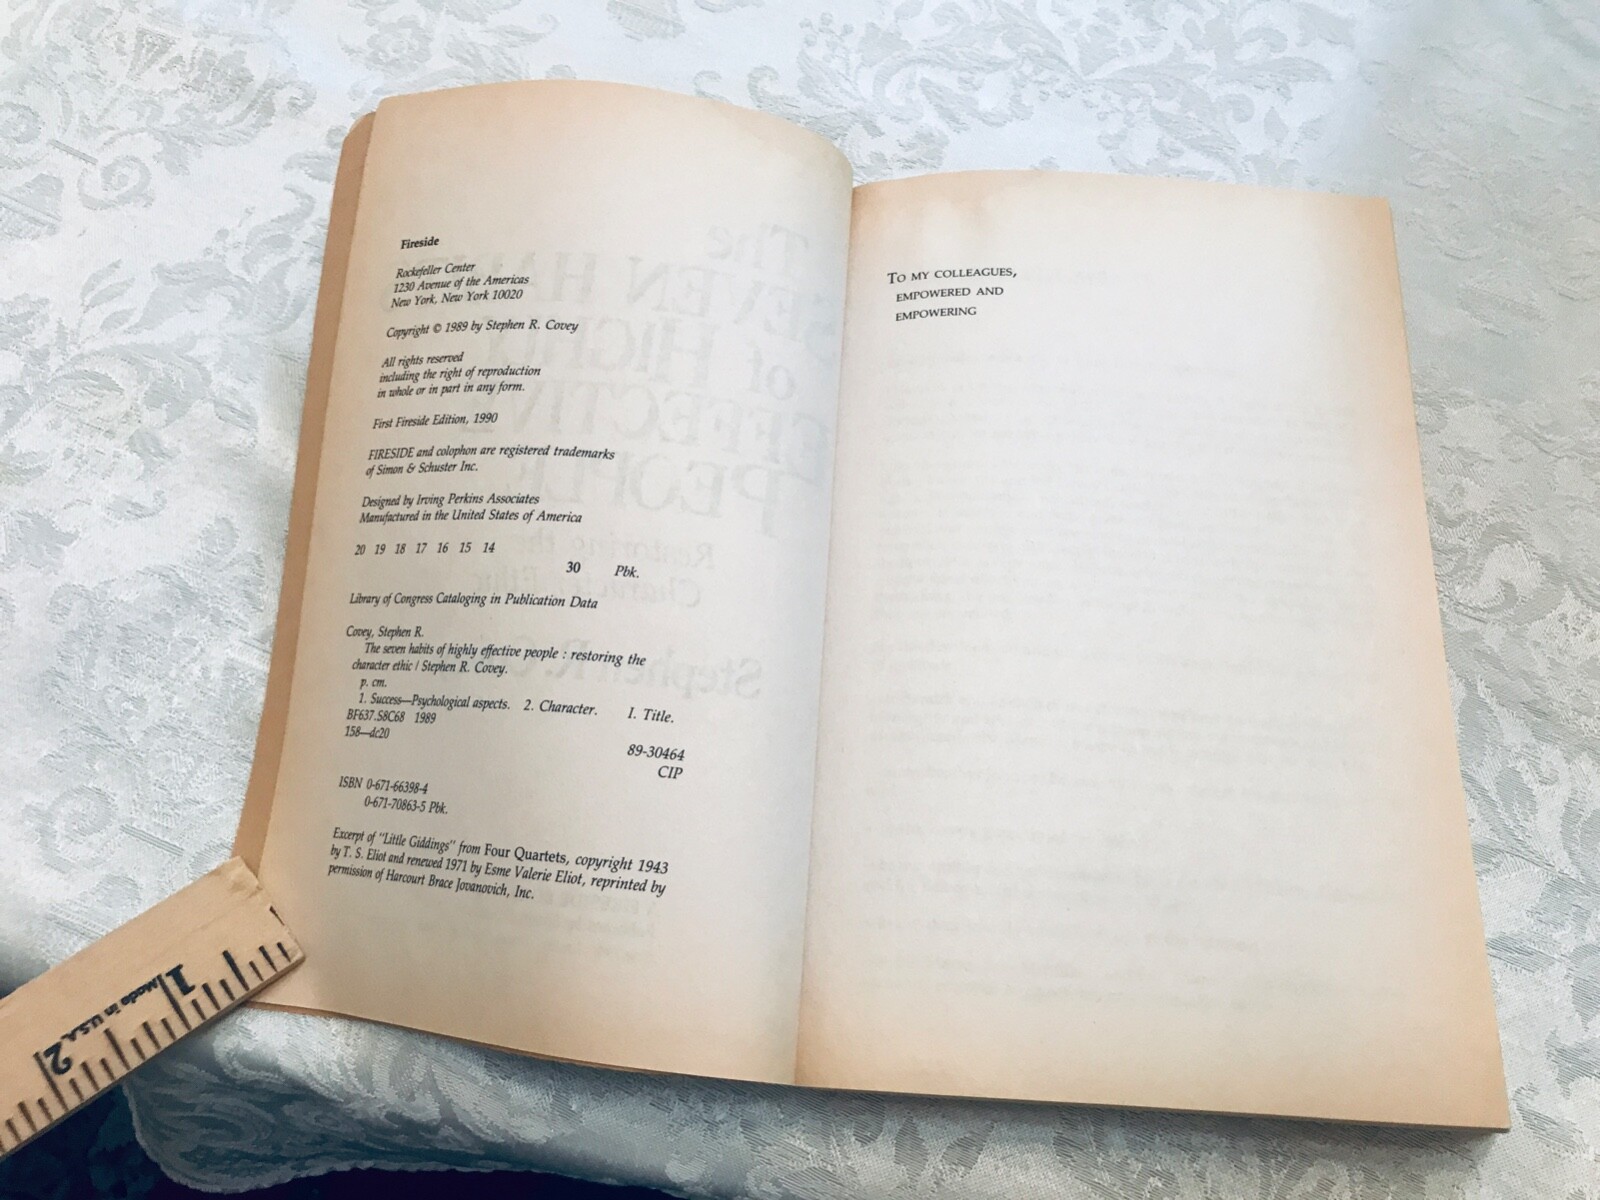 Fireside
Rockefeller Center
1230 Avenue of the Americas
New York, New York 10020
Copyright © 1989 by Stephen R. Covey
All rights reserved
including the right of reproduction
in whole or in part in any form.
First Fireside Edition, 1990
FIRESIDE and colophon are registered trademarks
of Simon & Schuster Inc.
Designed by Irving Perkins Associates
Manufactured in the United States of America
20 19 18 17 16 15 14
30 Pbk.
Library of Congress Cataloging in Publication Data
Covey, Stephen R.
The seven habits of highly effective people : restoring the
character ethic / Stephen R. Covey.
p. cm.
1. Success—Psychological aspects. 2. Character. I. Title.
BF637.S8C68 1989
158—dc20
89-30464
CIP
ISBN 0-671-66398-4
0-671-70863-5 Pbk.
Excerpt of "Little Giddings" from Four Quartets, copyright 1943
by T. S. Eliot and renewed 1971 by Esme Valerie Eliot, reprinted by
permission of Harcourt Brace Jovanovich, Inc.
TO MY COLLEAGUES,
EMPOWERED AND
EMPOWERING
1
Made in U.S.A.
2